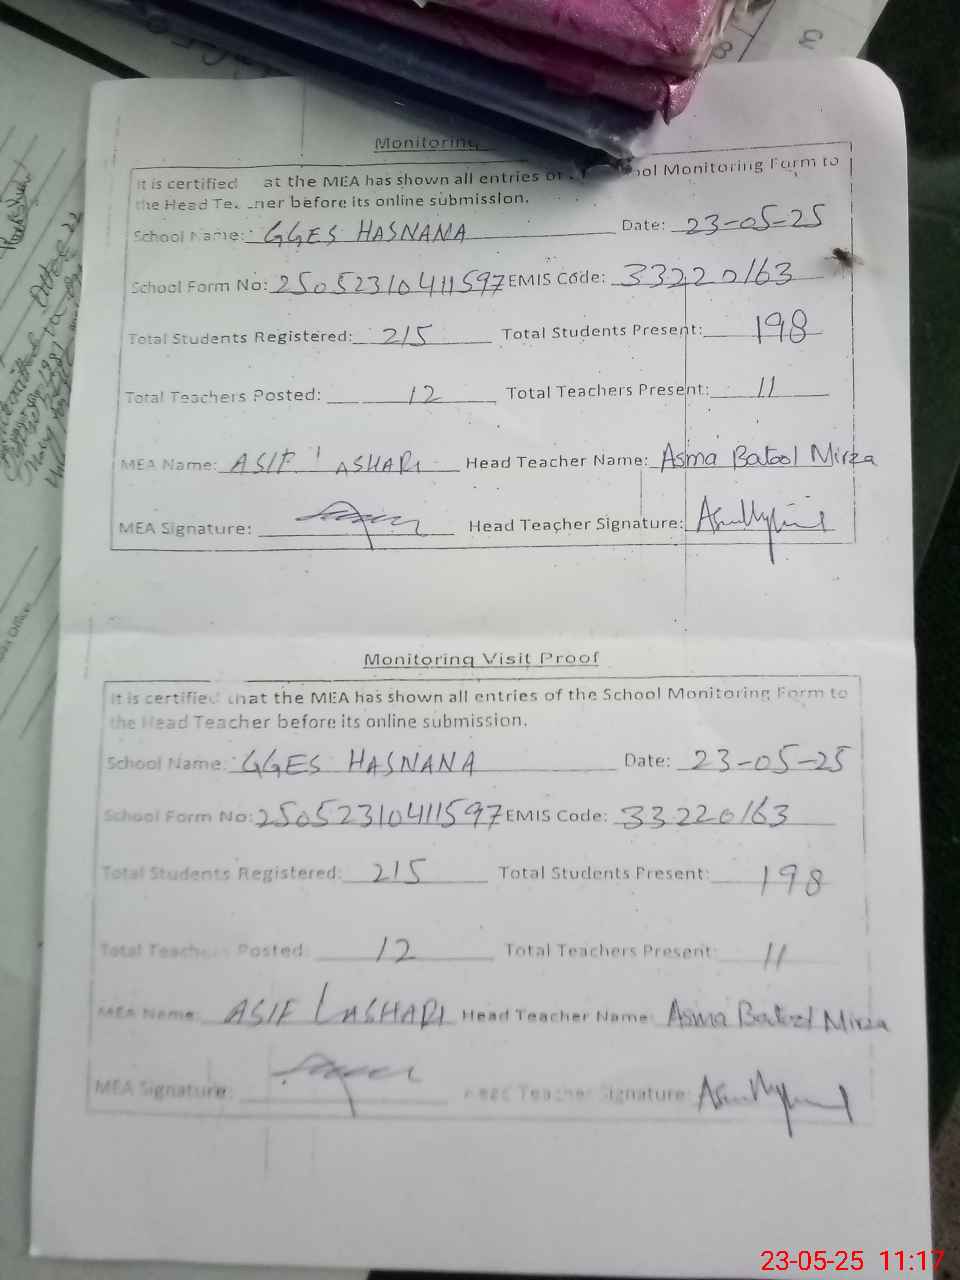 Monitoring
It is certified at the MEA has shown all entries of School Monitoring Form to
the Head Teacher before its online submission.
School Name: GGES HASNANA Date: 23-05-25
School Form No: 25052310411597 EMIS Code: 33220163
Total Students Registered: 215 Total Students Present: 198
Total Teachers Posted: 12 Total Teachers Present: 11
MEA Name: ASIF LASHARI Head Teacher Name: Asma Batool Mirza
MEA Signature: Head Teacher Signature:
Monitoring Visit Proof
It is certified that the MEA has shown all entries of the School Monitoring Form to
the Head Teacher before its online submission.
School Name: GGES HASNANA Date: 23-05-25
School Form No: 25052310411597 EMIS Code: 33220163
Total Students Registered: 215 Total Students Present: 198
Total Teachers Posted: 12 Total Teachers Present: 11
MEA Name: ASIF LASHARI Head Teacher Name: Asma Batool Mirza
MEA Signature: Head Teacher Signature:
23-05-25 11:17